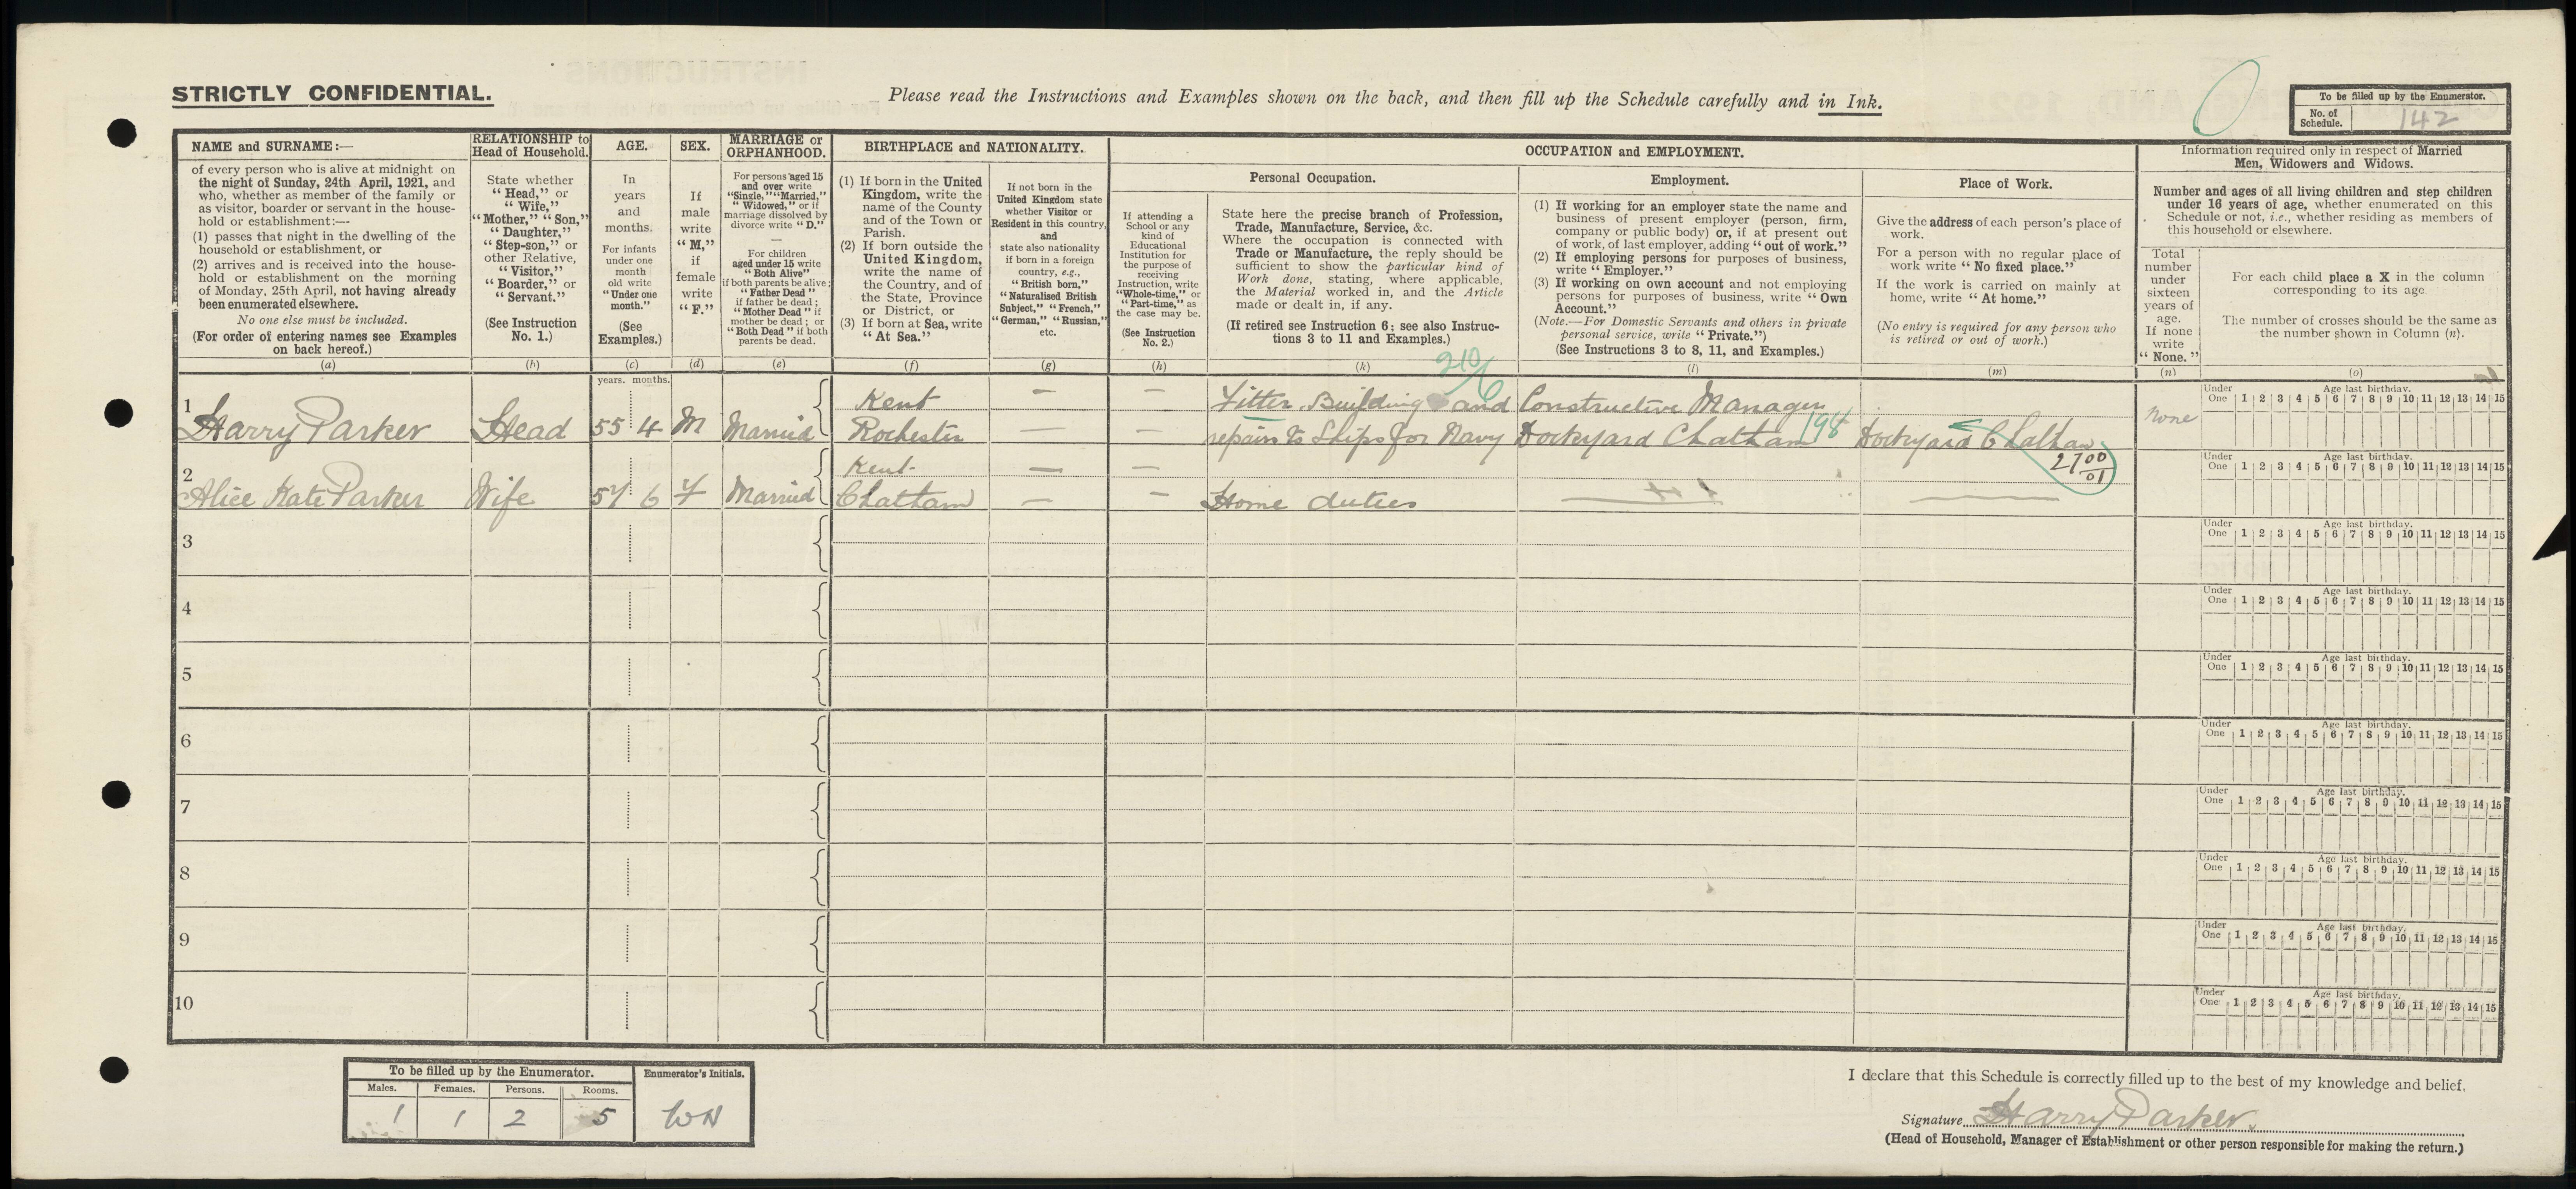 STRICTLY CONFIDENTIAL.
Please read the Instructions and Examples shown on the back, and then fill up the Schedule carefully and in Ink.
To be filled up by the Enumerator.
No. of Schedule. 142
NAME and SURNAME:—
of every person who is alive at midnight on
the night of Sunday, 24th April, 1921, and
who, whether as member of the family or
as visitor, boarder or servant in the house-
hold or establishment:—
(1) passes that night in the dwelling of the
household or establishment, or
(2) arrives and is received into the house-
hold or establishment on the morning
of Monday, 25th April, not having already
been enumerated elsewhere.
No one else must be included.
(For order of entering names see Examples
on back hereof.)
(a)
RELATIONSHIP to
Head of Household.
State whether
"Head," or
"Wife,"
"Mother," "Son,"
"Daughter,"
"Step-son," or
other Relative,
"Visitor,"
"Boarder," or
"Servant."
(See Instruction
No. 1.)
(b)
AGE.
In
years
and
months.
For infants
under one
month
old write
"Under one
month."
(See
Examples.)
(c)
SEX.
If
male
write
"M,"
if
female
write
"F."
(d)
MARRIAGE or
ORPHANHOOD.
For persons aged 15
and over write
"Single," "Married,"
"Widowed," or if
marriage dissolved by
divorce write "D."
—
For children
aged under 15 write
"Both Alive"
if both parents be alive;
"Father Dead"
if father be dead;
"Mother Dead" if
mother be dead; or
"Both Dead" if both
parents be dead.
(e)
BIRTHPLACE and NATIONALITY.
(1) If born in the United
Kingdom, write the
name of the County
and of the Town or
Parish.
(2) If born outside the
United Kingdom,
write the name of
the Country, and of
the State, Province
or District, or
(3) If born at Sea, write
"At Sea."
(f)
If not born in the
United Kingdom state
whether Visitor or
Resident in this country,
and
state also nationality
if born in a foreign
country, e.g.,
"British born,"
"Naturalised British
Subject," "French,"
"German," "Russian,"
etc.
(g)
OCCUPATION and EMPLOYMENT.
If attending a
School or any
kind of
Educational
Institution for
the purpose of
receiving
Instruction, write
"Whole-time," or
"Part-time," as
the case may be.
(See Instruction
No. 2.)
(h)
Personal Occupation.
State here the precise branch of Profession,
Trade, Manufacture, Service, &c.
Where the occupation is connected with
Trade or Manufacture, the reply should be
sufficient to show the particular kind of
Work done, stating, where applicable,
the Material worked in, and the Article
made or dealt in, if any.
(If retired see Instruction 6: see also Instruc-
tions 3 to 11 and Examples.)
(k)
Employment.
(1) If working for an employer state the name and
business of present employer (person, firm,
company or public body) or, if at present out
of work, of last employer, adding "out of work."
(2) If employing persons for purposes of business,
write "Employer."
(3) If working on own account and not employing
persons for purposes of business, write "Own
Account."
(Note.—For Domestic Servants and others in private
personal service, write "Private.")
(See Instructions 3 to 8, 11, and Examples.)
(l)
Place of Work.
Give the address of each person's place of
work.
For a person with no regular place of
work write "No fixed place."
If the work is carried on mainly at
home, write "At home."
(No entry is required for any person who
is retired or out of work.)
(m)
Information required only in respect of Married
Men, Widowers and Widows.
Number and ages of all living children and step children
under 16 years of age, whether enumerated on this
Schedule or not, i.e., whether residing as members of
this household or elsewhere.
Total
number
under
sixteen
years of
age.
If none
write
"None."
(n)
For each child place a X in the column
corresponding to its age.
The number of crosses should be the same as
the number shown in Column (n).
(o)
years. months.
210/6
1 Kent — — Fitter. Building and Constructive Manager
Harry Parker Head 55 4 M Married Rochester — — repairs to Ships for Navy Dockyard Chatham 198 Dockyard Chatham none
Under One Age last birthday. 1 2 3 4 5 6 7 8 9 10 11 12 13 14 15
2700/01
2 Kent — —
Alice Kate Parker Wife 57 6 F Married Chatham — — Home duties
Under One Age last birthday. 1 2 3 4 5 6 7 8 9 10 11 12 13 14 15
3 Under One Age last birthday. 1 2 3 4 5 6 7 8 9 10 11 12 13 14 15
4 Under One Age last birthday. 1 2 3 4 5 6 7 8 9 10 11 12 13 14 15
5 Under One Age last birthday. 1 2 3 4 5 6 7 8 9 10 11 12 13 14 15
6 Under One Age last birthday. 1 2 3 4 5 6 7 8 9 10 11 12 13 14 15
7 Under One Age last birthday. 1 2 3 4 5 6 7 8 9 10 11 12 13 14 15
8 Under One Age last birthday. 1 2 3 4 5 6 7 8 9 10 11 12 13 14 15
9 Under One Age last birthday. 1 2 3 4 5 6 7 8 9 10 11 12 13 14 15
10 Under One Age last birthday. 1 2 3 4 5 6 7 8 9 10 11 12 13 14 15
To be filled up by the Enumerator. Enumerator's Initials.
Males. Females. Persons. Rooms.
1 1 2 5 WH
I declare that this Schedule is correctly filled up to the best of my knowledge and belief.
Signature Harry Parker.
(Head of Household, Manager of Establishment or other person responsible for making the return.)